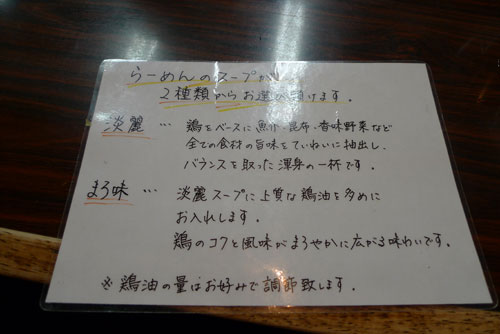 らーめんのスープが
2種類からお選び頂けます。
淡麗 … 鶏をベースに魚介・昆布・香味野菜など
全ての食材の旨味をていねいに抽出し、
バランスを取った渾身の一杯です。
まろ味 … 淡麗スープに上質な鶏油を多めに
お入れします。
鶏のコクと風味がまろやかに広がる味わいです。
※鶏油の量はお好みで調節致します。